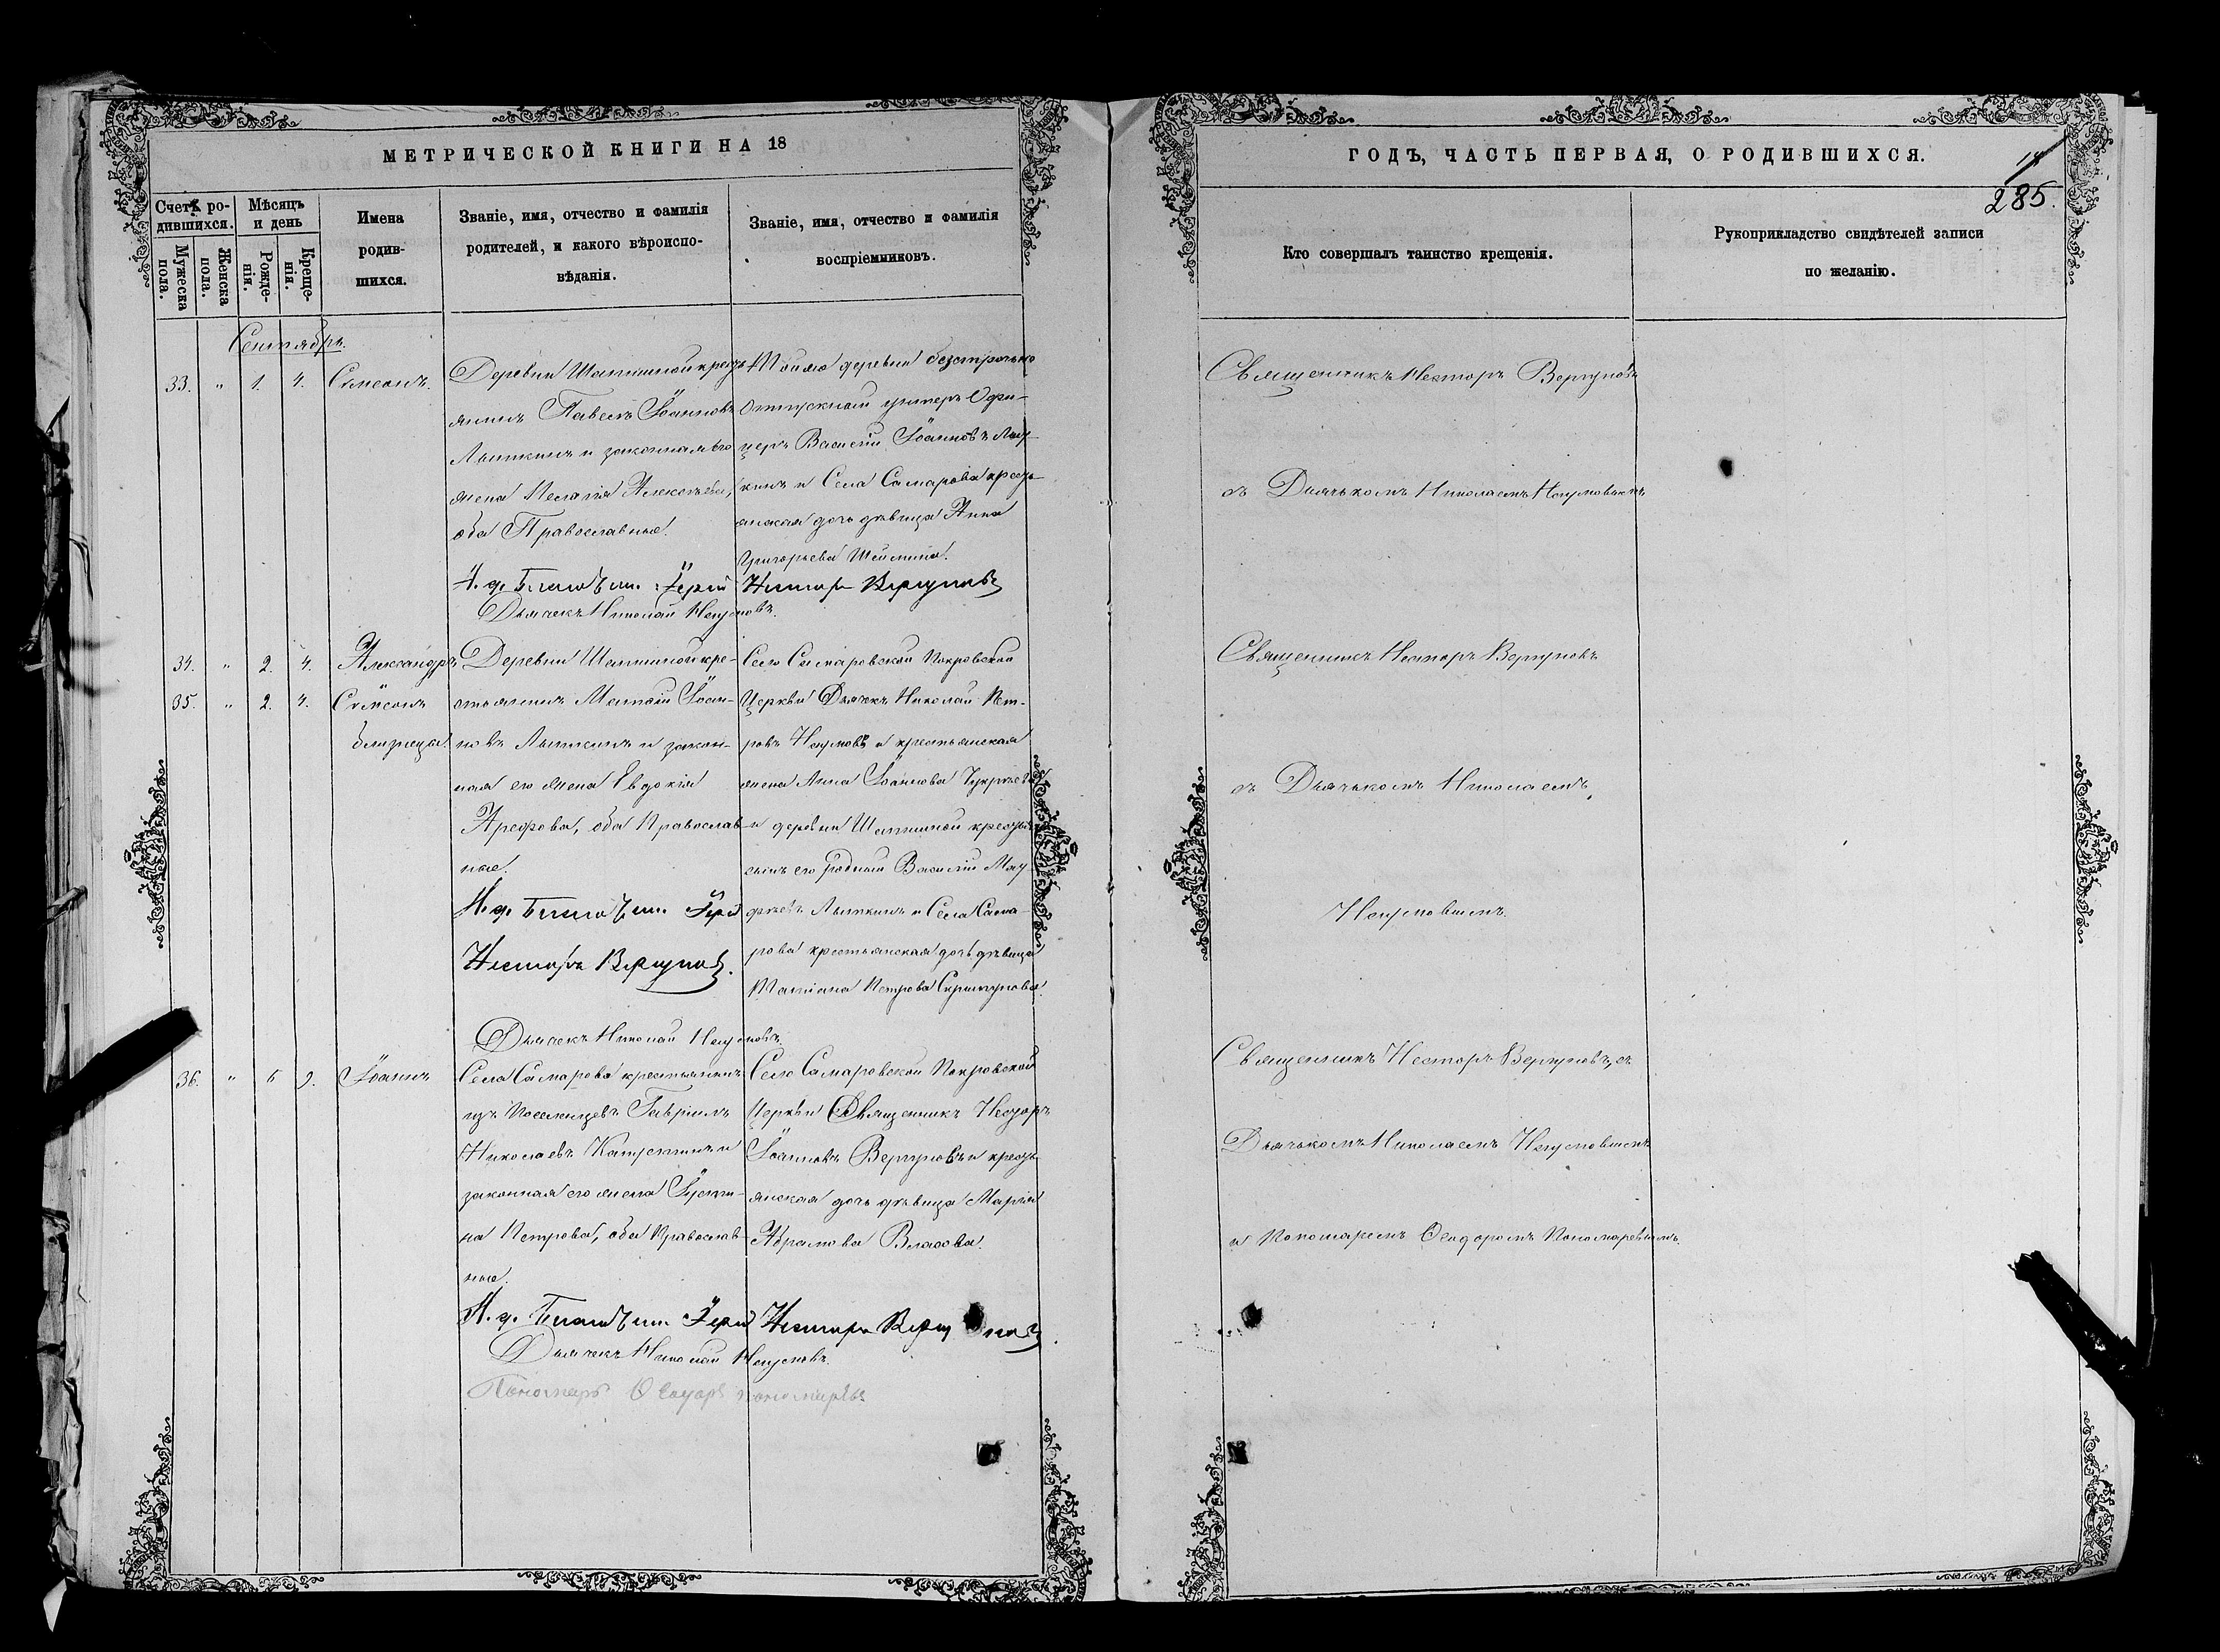 МЕТРИЧЕСКОЙ КНИГИ НА 18
Счетъ ро-
дившихся.
Мужеска
пола.
Женска
пола.
Мѣсяцъ
и день
Рожде-
нія.
Креще-
нія.
Имена
родив-
шихся.
Званіе, имя, отчество и фамилія
родителей, и какого вѣроиспо-
вѣданія.
Званіе, имя, отчество и фамилія
воспріемниковъ.
Сентябрь.
33. " 1. 4. Сѵмеонъ.
Деревни Шапшиной кресть-
янинъ Павелъ Іоанновъ
Лыткинъ и законная его
жена Пелагія Алексѣева,
оба Православные.
Тойже деревни безсрочно
Отпускной унтеръ Офи-
церъ Василій Іоанновъ Лыт-
кинъ и Села Самарова кресть-
янская дочь дѣвица Анна
Григорьева Шеймина.
И. д. Благочин. Іерей Несторъ Вергуновъ
Дьячекъ Николай Наумовъ.
34. " 2. 4. Александръ
35. " 2. 4. Сѵмеонъ
близнецы.
Деревни Шапшиной кре-
стьянинъ Матѳій Іоан-
новъ Лыткинъ и закон-
ная его жена Евдокія
Арефова, оба Православ-
ные.
И. д. Благочин. Іерей
Несторъ Вергуновъ.
Дьячекъ Николай Наумовъ.
Село Самаровской Покровской
Церкви Дьячекъ Николай Пет-
ровъ Наумовъ и крестьянская
жена Анна Іоаннова
и деревни Шапшиной кресть
сынъ его родный Василій Мат
фѣевъ Лыткинъ и Села Сама-
рова крестьянская дочь дѣвица
Татіана Петрова Скрипунова.
36. " 5 9. Іоаннъ
Села Самарова крестьянинъ
изъ Поселенцевъ Гавріилъ
Николаевъ и
законная его жена Іусти-
на Петрова, оба Православ-
ные.
Село Самаровской Покровской
Церкви Священникъ Несторъ
Іоанновъ Вергуновъ и кресть
янская дочь дѣвица Марія
Абрамова Власова.
И. д. Благочин. Іерей Несторъ Вергуновъ.
Дьячекъ Николай Наумовъ.
Пономарь Ѳеодоръ Пономаревъ
ГОДЪ, ЧАСТЬ ПЕРВАЯ, О РОДИВШИХСЯ.
285.
Кто совершалъ таинство крещенія.
Рукоприкладство свидѣтелей записи
по желанію.
Священникъ Несторъ Вергуновъ
съ Дьячькомъ Николаемъ Наумовымъ
Священникъ Несторъ Вергуновъ
съ Дьячькомъ Николаемъ
Наумовымъ.
Священникъ Несторъ Вергуновъ, съ
Дьячькомъ Николаемъ Наумовымъ
и Пономаремъ Ѳеодоромъ Пономаревымъ.